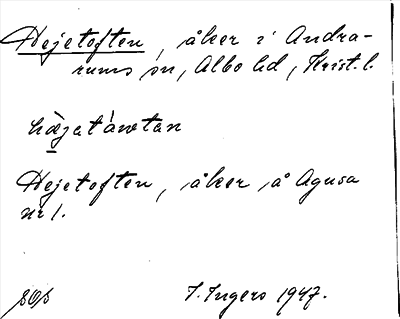 Hejetoften, åker i Andra-
rums sn, Albo hd, Krist. l.
hæjetåwtan
Hejetoften, åker på Agusa
nr 1.
I. Ingers 1947.